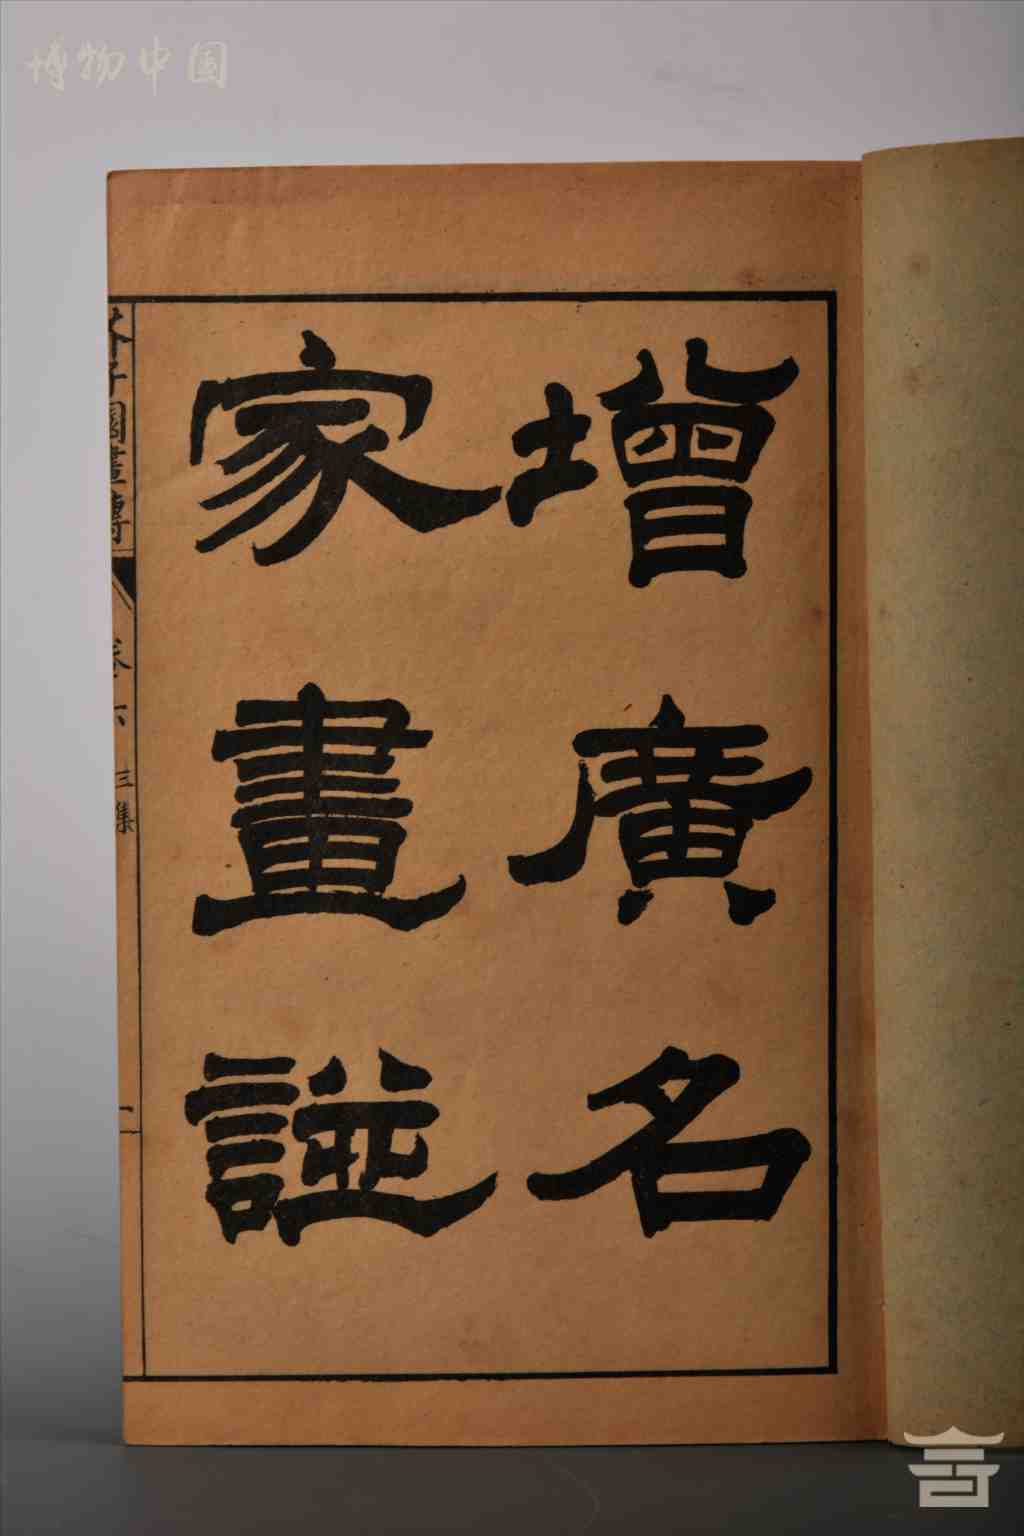 增廣名
家畫譜
芥子園畫傳
卷六
三集
一
博物中国